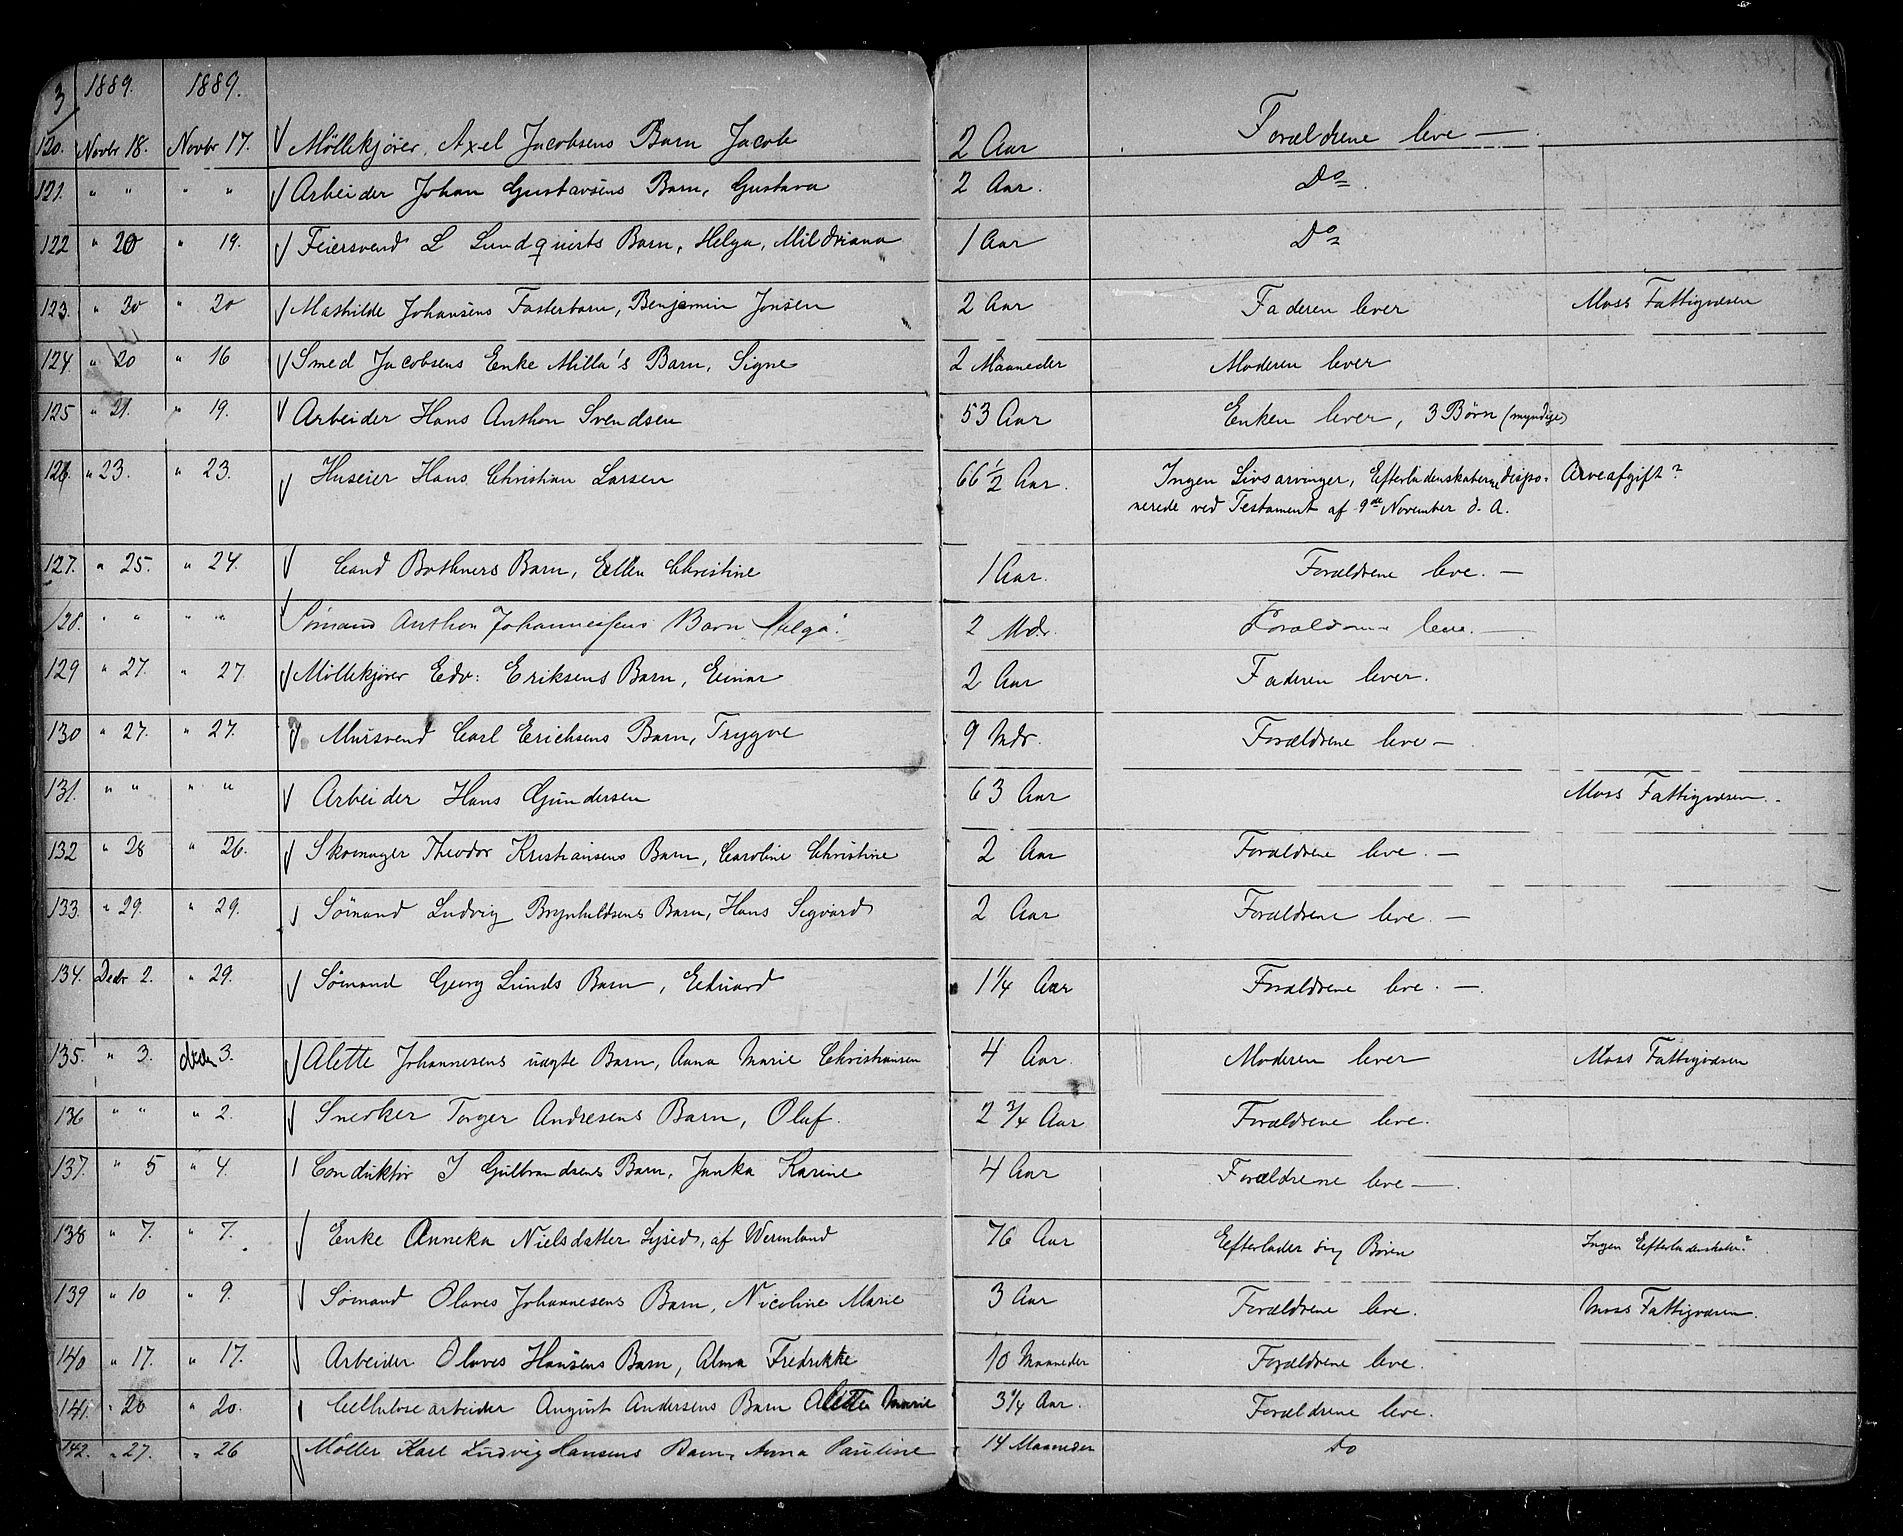 3/ 1889. 1889.
120. Novbr 18. Novbr 17. Møllekjører Axel Jacobsens Barn Jacob 2 Aar Forældrene leve —
121. " " " " Arbeider Johan Gustavsens Barn, Gustava 2 Aar. Do.
122 " 20 " 19. Feiersvend L Lundquists Barn, Helga, Mildriana 1 Aar Do
123. " 20 " 20 Mathilde Johansens Fosterbarn, Benjamin Jonsen 2 Aar Faderen lever Moss Fattigvæsen
124. " 20 " 16 Smed Jacobsens Enke Milla's Barn, Signe 2 Maaneder Moderen lever
125 " 21. " 19. Arbeider Hans Anthon Svendsen 53 Aar Enken lever, 3 Børn (myndige)
126. " 23. " 23. Huseier Hans Christian Larsen 66 1/2 Aar. Ingen Livsarvinger, Efterladenskaberne dispo- Arveafgift?
nerede ved Testament af 9de November d. A.
127. " 25. " 24. Cand Bothners Barn, Ellen Christine 1 Aar. Forældrene leve. —
128. " " " " Sømand Anthon Johannessens Barn Helga. 2 Mdr. Forældrene leve. —
129 " 27. " 27. Møllekjører Edv: Eriksens Barn, Einar 2 Aar Faderen lever.
130 " 27. " 27. Mursvend Carl Erichsens Barn, Trygve 9 Mdr. Forældrene leve —
131. " " " " Arbeider Hans Gundersen 63 Aar Moss Fattigvæsen.
132 " 28 " 26. Skomager Theodor Kristiansens Barn, Caroline Christine 2 Aar Forældrene leve. —
133. " 29. " 29. Sømand Ludvig Brynhildsens Barn, Hans Sigvard 2 Aar Forældrene leve. —
134. Decbr 2. " 29. Sømand Georg Lunds Barn, Eduard 1 1/4 Aar Forældrene leve. —.
135. " 3. 3. Alette Johannesens uægte Barn, Anna Marie Christiansen 4 Aar. Moderen lever Moss Fattigvæsen
136 " " " 2. Snedker Torger Andresens Barn, Oluf. 2 3/4 Aar Forældrene leve.
137. " 5 " 4. Conduktør J Gulbrandsens Barn, Janka Karine 4 Aar Forældrene leve —.
138 " 7. " 7. Enke Anneka Nielsdatter Lysed, af Wermland 76 Aar Efterlader sig Børn Ingen Efterladenskaber?
139 " 10 " 9. Sømand Olaves Johannesens Barn, Nicoline Marie 3 Aar Forældrene leve. Moss Fattigvæsen.
140 " 17. " 17. Arbeider Olaves Hansens Barn, Alma Fredrikke 10 Maaneder Forældrene leve.
141. " 20 " 20. Cellulosearbeider August Andersens Barn Alette Marie 3 1/4 Aar. Forældrene leve.
142. " 27. " 26 Møller Karl Ludvig Hansens Barn, Anna Pauline 14 Maaneder Do